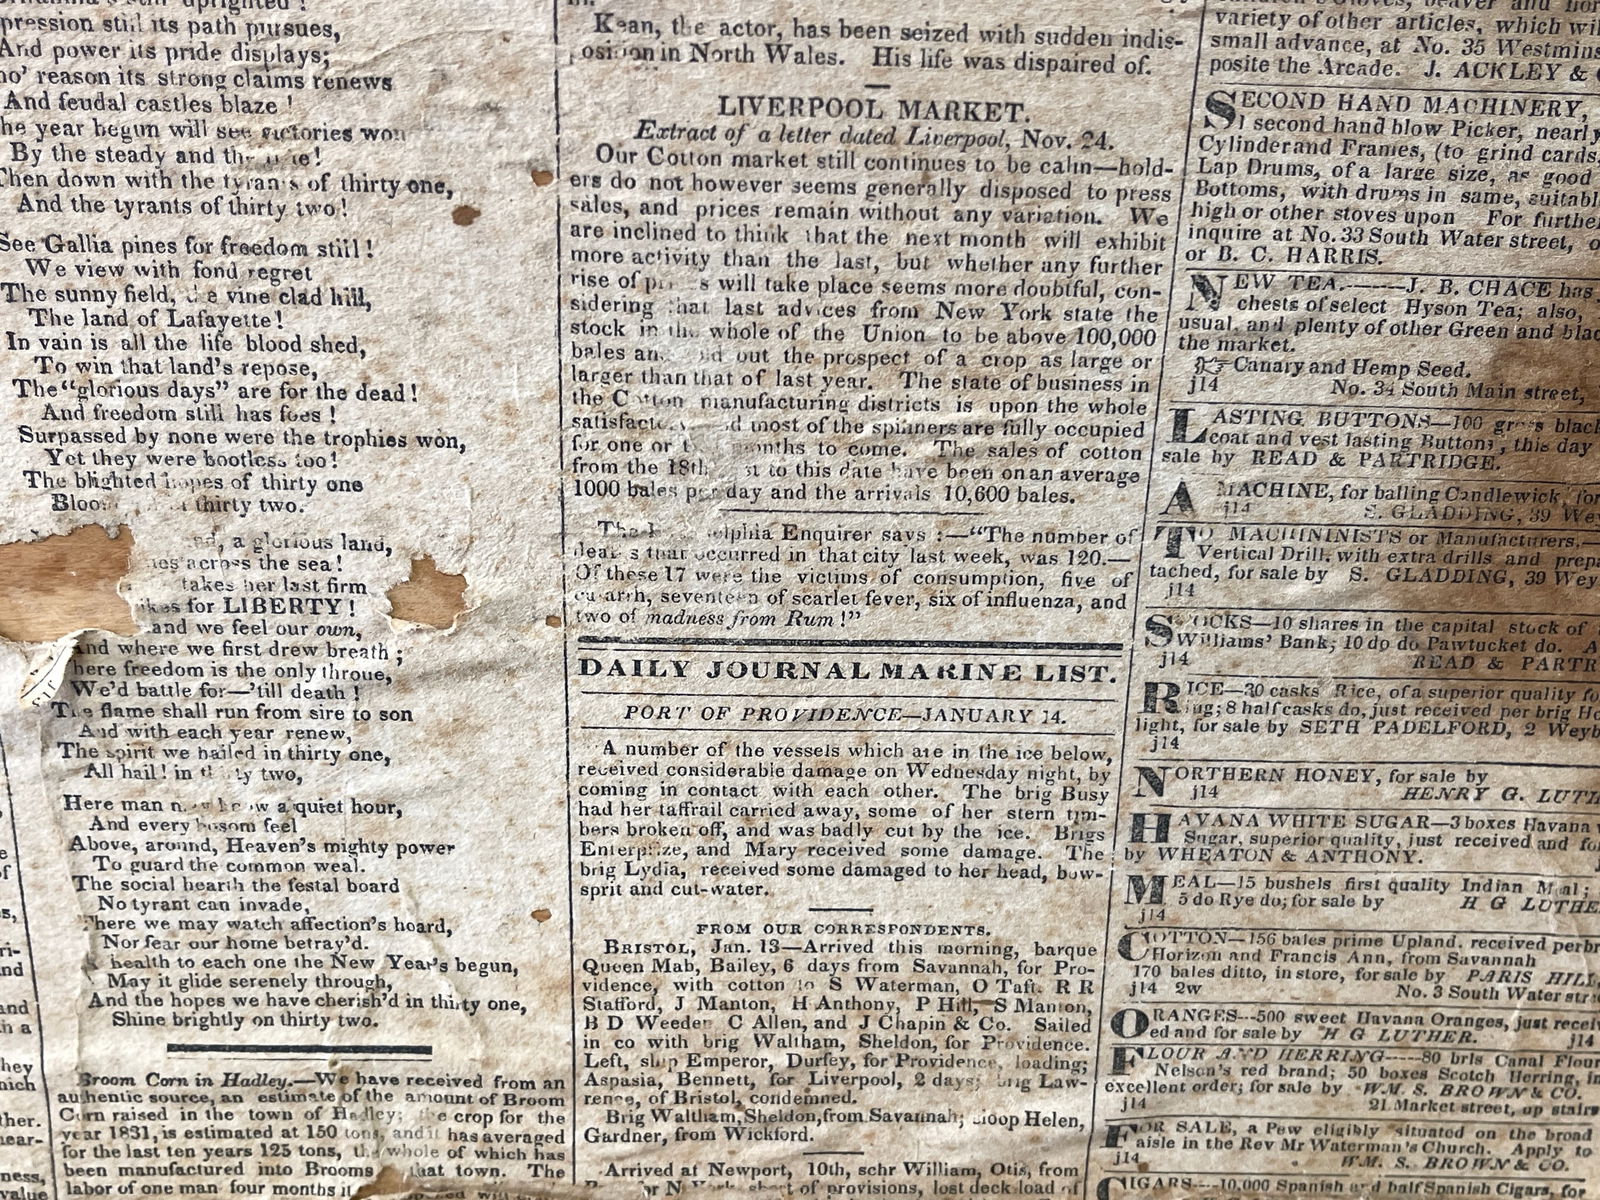 pression still its path pursues,
And power its pride displays;
reason its strong claims renews
And feudal castles blaze!
he year begun will see victories won
By the steady and the
Then down with the tyrants of thirty one,
And the tyrants of thirty two!
See Gallia pines for freedom still!
We view with fond regret
The sunny field, vine clad hill,
The land of Lafayette!
In vain is all the life blood shed,
To win that land's repose,
The "glorious days" are for the dead!
And freedom still has foes!
Surpassed by none were the trophies won,
Yet they were bootless too!
The blighted hopes of thirty one
thirty two.
a glorious land,
across the sea!
takes her last firm
for LIBERTY!
and we feel our own,
And where we first drew breath;
here freedom is the only throne,
We'd battle for—'till death!
The flame shall run from sire to son
And with each year renew,
The spirit we hailed in thirty one,
All hail! in two,
Here man a quiet hour,
And every bosom feel
Above, around, Heaven's mighty power
To guard the common weal.
The social hearth the festal board
No tyrant can invade,
There we may watch affection's hoard,
Nor fear our home betray'd.
health to each one the New Year's begun,
May it glide serenely through,
And the hopes we have cherish'd in thirty one,
Shine brightly on thirty two.
Broom Corn in Hadley.—We have received from an
authentic source, an estimate of the amount of Broom
Corn raised in the town of Hadley; the crop for the
year 1831, is estimated at 150 tons, and it has averaged
for the last ten years 125 tons, the whole of which has
been manufactured into Brooms that town. The
labor of one man four months
Kean, the actor, has been seized with sudden indis-
position in North Wales. His life was dispaired of.
LIVERPOOL MARKET.
Extract of a letter dated Liverpool, Nov. 24.
Our Cotton market still continues to be calm—hold-
ers do not however seems generally disposed to press
sales, and prices remain without any variation. We
are inclined to think that the next month will exhibit
more activity than the last, but whether any further
rise of will take place seems more doubtful, con-
sidering that last advices from New York state the
stock in the whole of the Union to be above 100,000
bales out the prospect of a crop as large or
larger than that of last year. The state of business in
the Cotton manufacturing districts is upon the whole
most of the spinners are fully occupied
for one or months to come. The sales of cotton
from the 18th to this date have been on an average
1000 bales per day and the arrivals 10,600 bales.
Enquirer says:—"The number of
that occurred in that city last week, was 120.—
Of these 17 were the victims of consumption, five of
catarrh, seventeen of scarlet fever, six of influenza, and
two of madness from Rum!"
DAILY JOURNAL MARINE LIST.
PORT OF PROVIDENCE—JANUARY 14.
A number of the vessels which are in the ice below,
received considerable damage on Wednesday night, by
coming in contact with each other. The brig Busy
had her taffrail carried away, some of her stern tim-
bers broken off, and was badly cut by the ice. Brigs
Enterprize, and Mary received some damage. The
brig Lydia, received some damaged to her head, bow-
sprit and cut-water.
FROM OUR CORRESPONDENTS.
BRISTOL, Jan. 13—Arrived this morning, barque
Queen Mab, Bailey, 6 days from Savannah, for Pro-
vidence, with cotton to S Waterman, O Taft. R R
Stafford, J Manton, H Anthony, P Hill, S Manton,
B D Weeden C Allen, and J Chapin & Co. Sailed
in co with brig Waltham, Sheldon, for Providence.
Left, ship Emperor, Durfey, for Providence, loading;
Aspasia, Bennett, for Liverpool, 2 days; brig Law-
rence, of Bristol, condemned.
Brig Waltham, Sheldon, from Savannah; sloop Helen,
Gardner, from Wickford.
Arrived at Newport, 10th, schr William, Otis, from
of provisions, lost deck load of
variety of other articles, which wil
small advance, at No. 35 Westmins
posite the Arcade. J. ACKLEY &
SECOND HAND MACHINERY,
1 second hand blow Picker, nearly
Cylinder and Frames, (to grind cards,
Lap Drums, of a large size, as good
Bottoms, with drums in same, suitabl
high or other stoves upon For further
inquire at No. 33 South Water street, o
or B. C. HARRIS.
NEW TEA.——J. B. CHACE has
chests of select Hyson Tea; also,
usual, and plenty of other Green and blac
the market.
☞ Canary and Hemp Seed.
j14 No. 34 South Main street,
LASTING BUTTONS—100 gross black
coat and vest lasting Buttons, this day
sale by READ & PARTRIDGE.
A MACHINE, for balling Candlewick, for
j14 S. GLADDING, 39 Wey
TO MACHININISTS or Manufacturers,—
Vertical Drill, with extra drills and prepa
tached, for sale by S. GLADDING, 39 Wey
j14
STOCKS—10 shares in the capital stock of
Williams' Bank; 10 do do Pawtucket do. A
j14 READ & PARTR
RICE—30 casks Rice, of a superior quality fo
ing; 8 half casks do, just received per brig He
light, for sale by SETH PADELFORD, 2 Weyb
j14
NORTHERN HONEY, for sale by
j14 HENRY G. LUTH
HAVANA WHITE SUGAR—3 boxes Havana
Sugar, superior quality, just received and fo
by WHEATON & ANTHONY.
MEAL—15 bushels first quality Indian Meal;
5 do Rye do; for sale by H G LUTHE
j14
COTTON—156 bales prime Upland. received per br
Horizon and Francis Ann, from Savannah
170 bales ditto, in store, for sale by PARIS HILL,
j14 2w No. 3 South Water stre
ORANGES---500 sweet Havana Oranges, just receiv
ed and for sale by H G LUTHER. j14
FLOUR AND HERRING-----80 brls Canal Flour
Nelson's red brand; 50 boxes Scotch Herring, in
excellent order; for sale by WM. S. BROWN & CO.
j14 21 Market street, up stairs
FOR SALE, a Pew eligibly situated on the broad
aisle in the Rev Mr Waterman's Church. Apply to
j14 WM. S. BROWN & CO.
CIGARS---10,000 Spanish and half Spanish Cigars, for